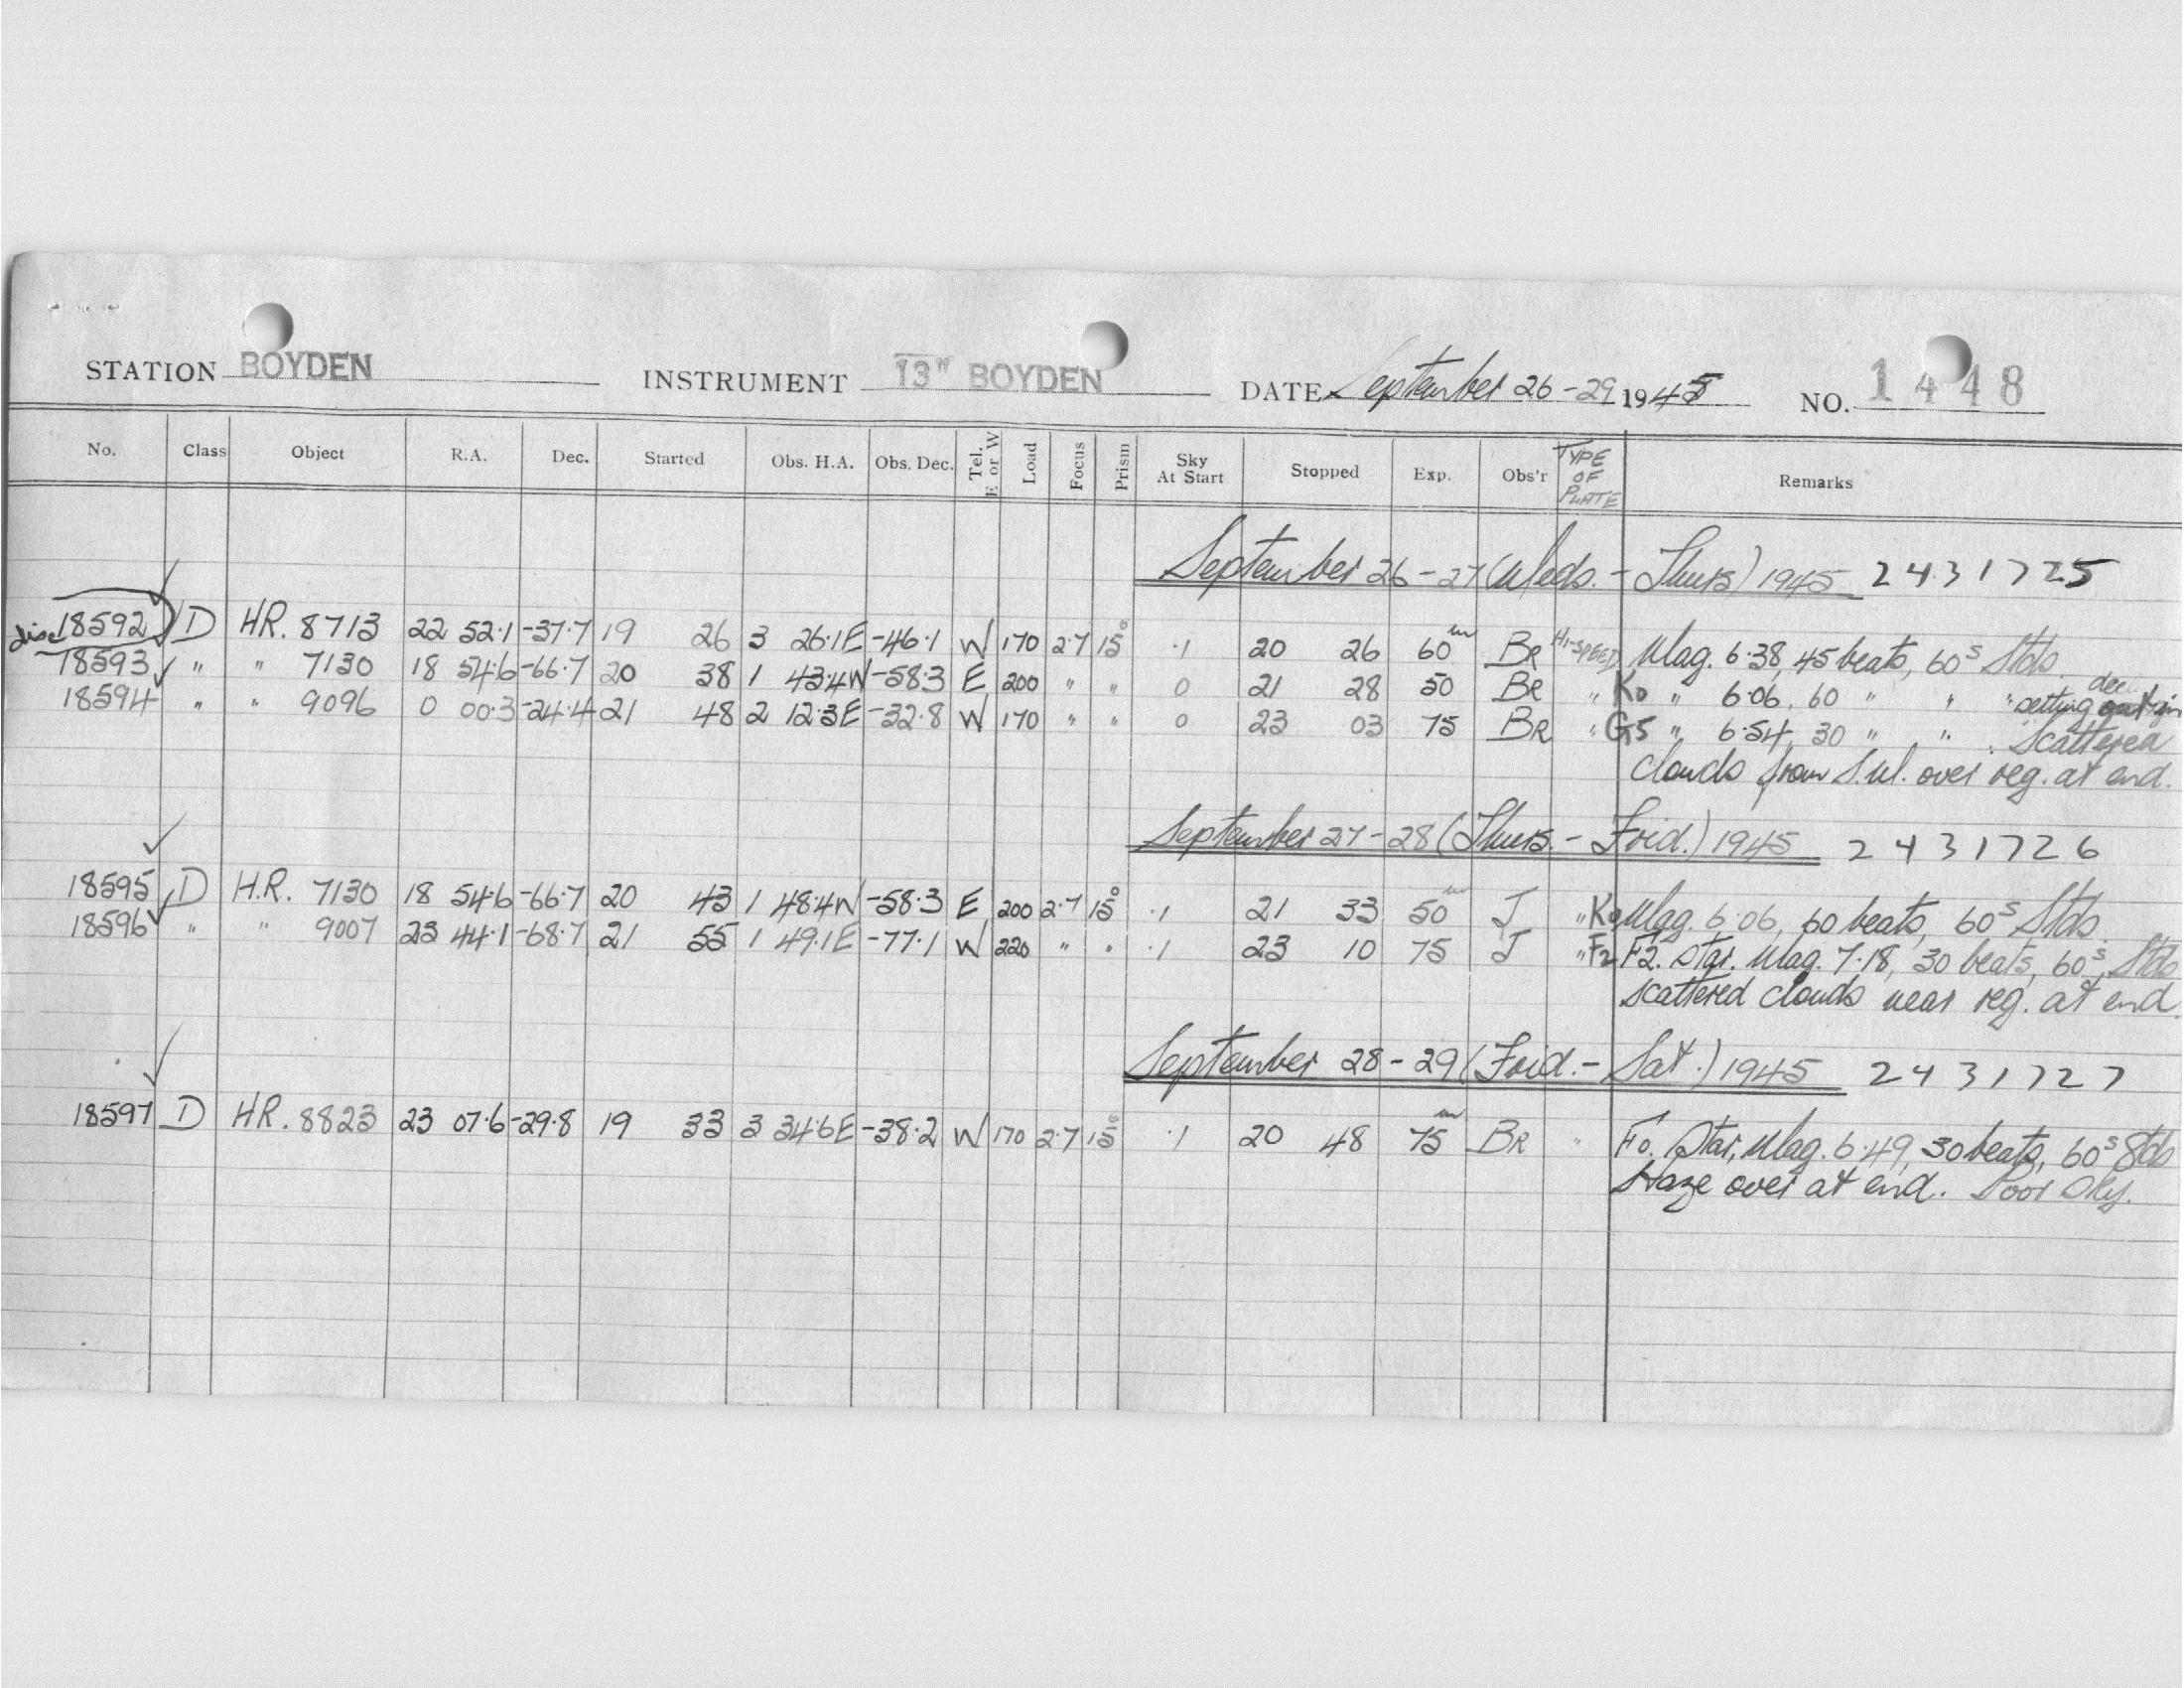 STATION BOYDEN INSTRUMENT 13" BOYDEN DATE September 26-29 1945 NO. 1448
No. Class Object R.A. Dec. Started Obs. H.A. Obs. Dec. Tel. E or W Load Focus Prism Sky At Start Stopped Exp. Obs'r TYPE OF PLATE Remarks
September 26-27 (Weds. - Thurs) 1945 2431725
disc 18592 D HR. 8713 22 52·1 -37·7 19 26 3 26·1E -46·1 W 170 2·7 15° ·1 20 26 60m BR HI-SPEED Mag. 6·38, 45 beats, 60s Stds.
18593 " " 7130 18 54·6 -66·7 20 38 1 43·4W -58·3 E 200 " " 0 21 28 50 BR " K0 " 6·06, 60 " " " setting
18594 " " 9096 0 00·3 -24·4 21 48 2 12·3E -32·8 W 170 " " 0 23 03 75 BR " G5 " 6·54, 30 " " " Scattered
Clouds from S.W. over reg. at end.
September 27-28 (Thurs. - Frid.) 1945 2431726
18595 D H.R. 7130 18 54·6 -66·7 20 43 1 48·4W -58·3 E 200 2·7 15° ·1 21 33 50m J " K0 Mag. 6·06, 60 beats, 60s Stds.
18596 " " 9007 23 44·1 -68·7 21 55 1 49·1E -77·1 W 220 " " ·1 23 10 75 J " F2 F2. Star. Mag. 7·18, 30 beats, 60s, Stds
Scattered Clouds near reg. at end.
September 28-29 (Frid. - Sat.) 1945 2431727
18597 D HR. 8823 23 07·6 -29·8 19 33 3 34·6E -38·2 W 170 2·7 15° ·1 20 48 75m BR " F0. Star, Mag. 6·49, 30 beats, 60s Stds
Haze over at end. Poor Sky.